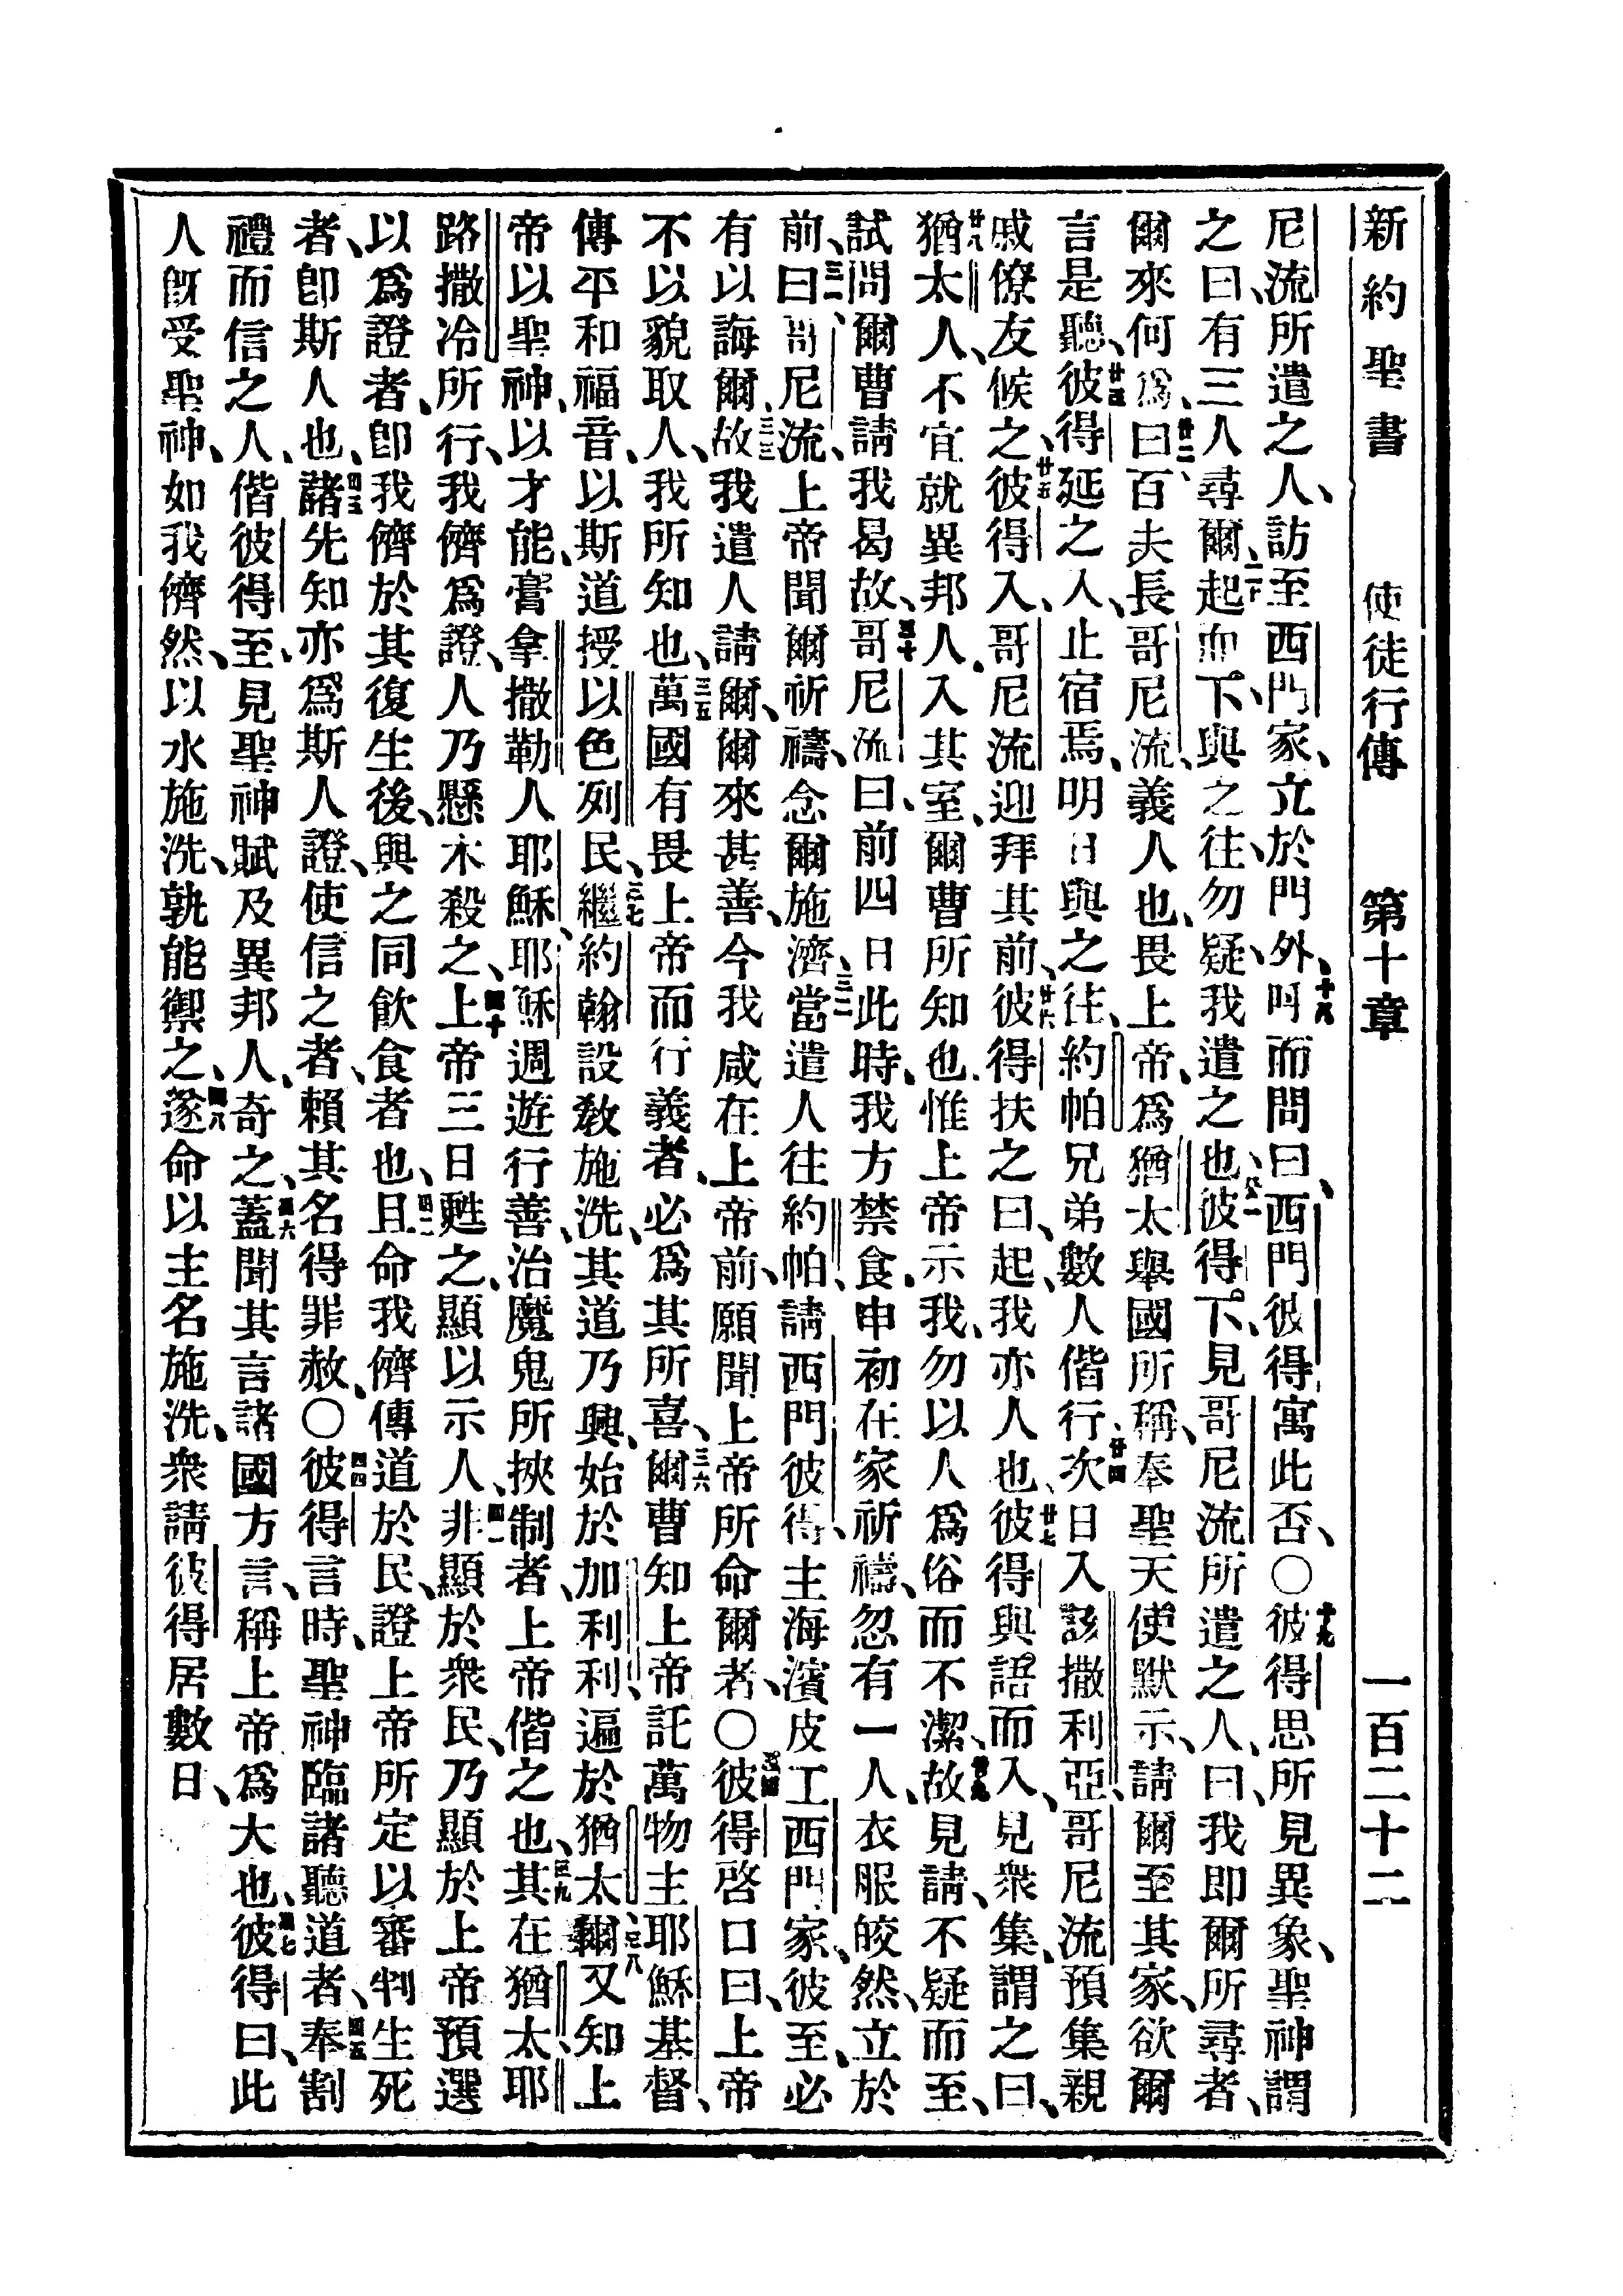 新約聖書 使徒行傳 第十章 一百二十二
尼流所遣之人、訪至西門家、立於門外、十八呼而問曰、西門彼得寓此否、〇十九彼得思所見異象、聖神謂
之曰、有三人尋爾、二十起而下、與之往、勿疑、我遣之也、廿一彼得下、見哥尼流所遣之人、曰、我即爾所尋者、
爾來何爲、廿二曰、百夫長哥尼流、義人也、畏上帝、爲猶太舉國所稱、奉聖天使默示、請爾至其家、欲爾
言是聽、廿三彼得延之入、止宿焉、明日與之往、約帕兄弟數人偕行、廿四次日入該撒利亞、哥尼流預集親
戚僚友候之、廿五彼得入、哥尼流迎拜其前、廿六彼得扶之曰、起、我亦人也、廿七彼得與語而入、見衆集、謂之曰、
廿八猶太人、不宜就異邦人、入其室、爾曹所知也、惟上帝示我、勿以人爲俗而不潔、廿九故見請、不疑而至、
試問爾曹請我曷故、三十哥尼流曰、前四日此時、我方禁食、申初在家祈禱、忽有一人、衣服皎然、立於
前、三一曰、哥尼流、上帝聞爾祈禱、念爾施濟、三二當遣人往約帕、請西門彼得、主海濱皮工西門家、彼至、必
有以誨爾、三三故我遣人請爾、爾來甚善、今我咸在上帝前、願聞上帝所命爾者、〇三四彼得啓口曰、上帝
不以貌取人、我所知也、三五萬國有畏上帝而行義者、必爲其所喜、三六爾曹知上帝託萬物主耶穌基督、
傳平和福音、以斯道授以色列民、三七繼約翰設教施洗、其道乃興、始於加利利、遍於猶太、三八爾又知上
帝以聖神、以才能、膏拿撒勒人耶穌、耶穌週遊行善、治魔鬼所挾制者、上帝偕之也、三九其在猶太、耶
路撒冷所行、我儕爲證、人乃懸木殺之、四十上帝三日甦之、顯以示人、四一非顯於衆民、乃顯於上帝預選
以爲證者、卽我儕於其復生後、與之同飲食者也、四二且命我儕傳道於民、證上帝所定以審判生死
者、卽斯人也、四三諸先知亦爲斯人證、使信之者、賴其名得罪赦、〇四四彼得言時、聖神臨諸聽道者、四五奉割
禮而信之人、偕彼得至、見聖神賦及異邦人、奇之、四六蓋聞其言諸國方言、稱上帝爲大也、四七彼得曰、此
人旣受聖神、如我儕然、以水施洗、孰能禦之、四八遂命以主名施洗、衆請彼得居數日、